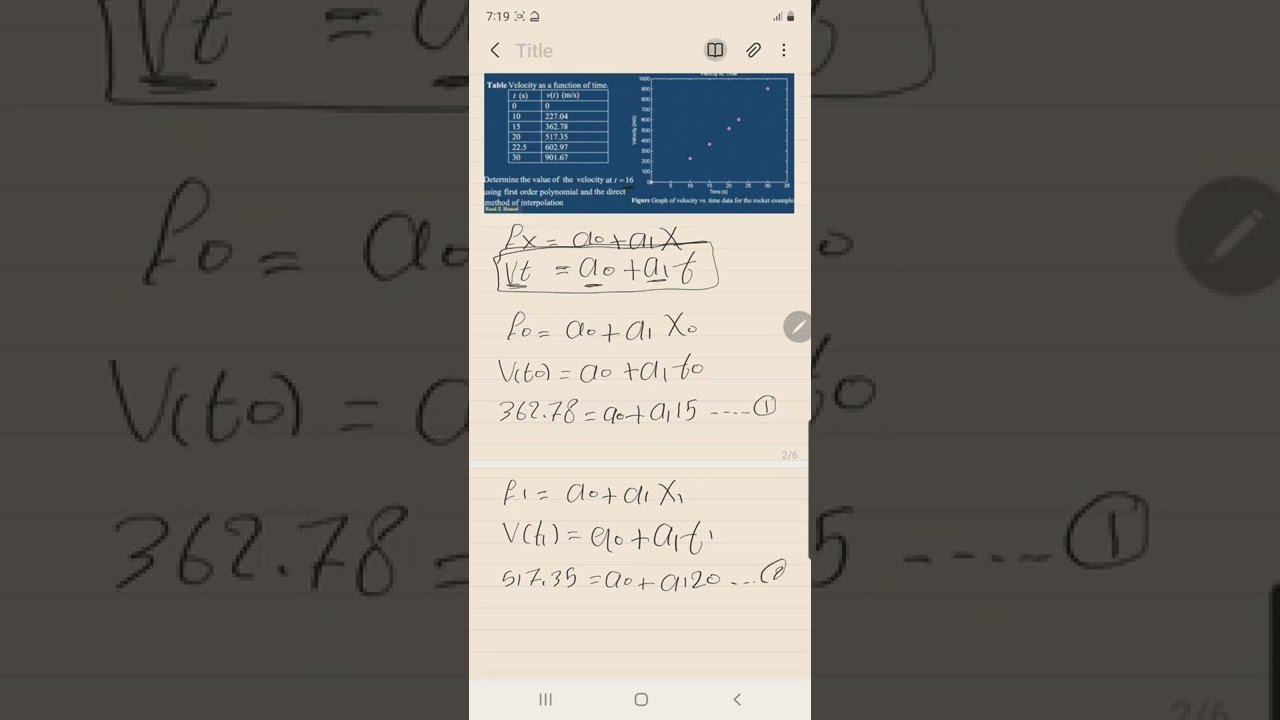 7:19
Title
Table Velocity as a function of time.
t (s) v(t) (m/s)
0 0
10 227.04
15 362.78
20 517.35
22.5 602.97
30 901.67
Determine the value of the velocity at t = 16
using first order polynomial and the direct
method of interpolation
Velocity vs. Time
1000
900
800
700
600
500
400
300
200
100
0
Velocity (m/s)
5 10 15 20 25 30 35
Time (s)
Figure Graph of velocity vs. time data for the rocket example
fx = a0 + a1 X
Vt = a0 + a1 t
f0 = a0 + a1 X0
V(t0) = a0 + a1 t0
362.78 = a0 + a1 15 ---- ①
2/6
f1 = a0 + a1 X1
V(t1) = a0 + a1 t1
517.35 = a0 + a1 20 ---- ②